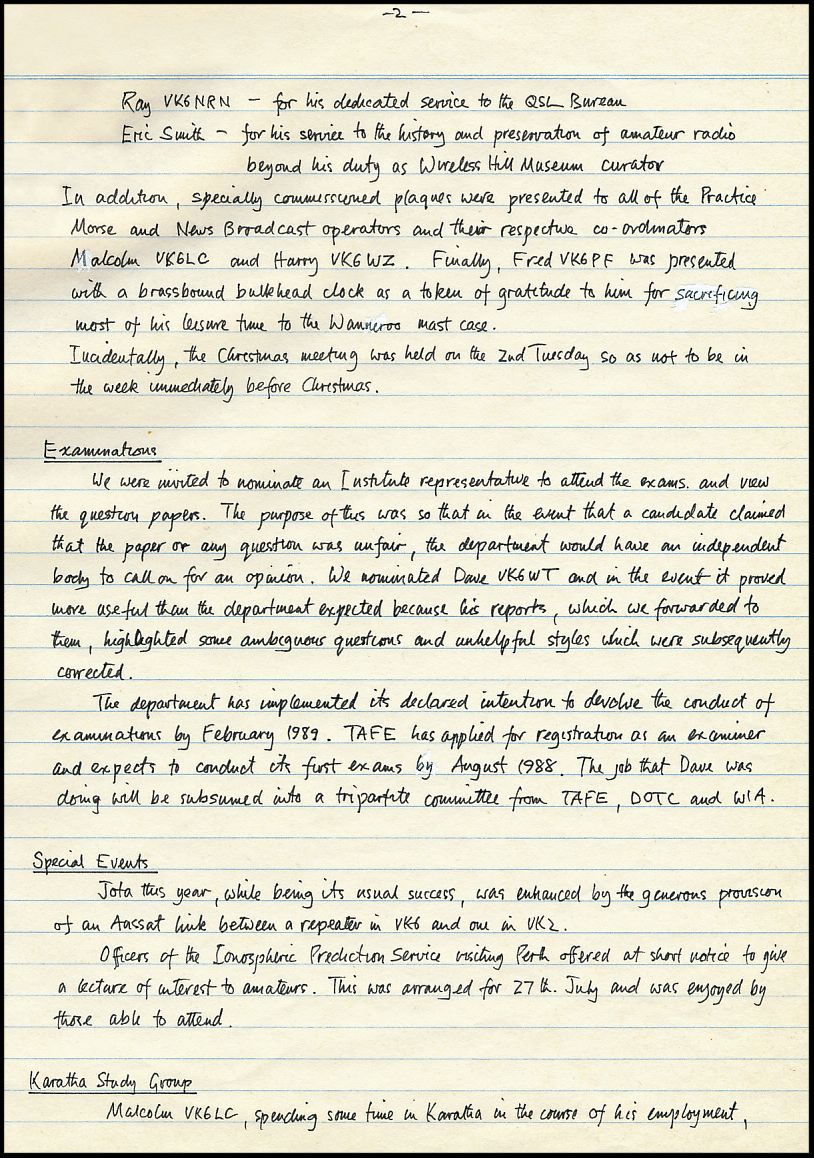 -2-
Ray VK6NRN - for his dedicated service to the QSL Bureau
Eric Smith - for his service to the history and preservation of amateur radio
beyond his duty as Wireless Hill Museum curator
In addition, specially commissioned plaques were presented to all of the Practice
Morse and News Broadcast operators and their respective co-ordinators
Malcolm VK6LC and Harry VK6WZ. Finally, Fred VK6PF was presented
with a brassbound bulkhead clock as a token of gratitude to him for sacrificing
most of his leisure time to the Wanneroo mast case.
Incidentally, the Christmas meeting was held on the 2nd Tuesday so as not to be in
the week immediately before Christmas.
Examinations
We were invited to nominate an Institute representative to attend the exams. and view
the question papers. The purpose of this was so that in the event that a candidate claimed
that the paper or any question was unfair, the department would have an independent
body to call on for an opinion. We nominated Dave VK6WT and in the event it proved
more useful than the department expected because his reports, which we forwarded to
them, highlighted some ambiguous questions and unhelpful styles which were subsequently
corrected.
The department has implemented its declared intention to devolve the conduct of
examinations by February 1989. TAFE has applied for registration as an examiner
and expects to conduct its first exams by August 1988. The job that Dave was
doing will be subsumed into a tripartite committee from TAFE, DOTC and WIA.
Special Events
Jota this year, while being its usual success, was enhanced by the generous provision
of an Aussat link between a repeater in VK6 and one in VK2.
Officers of the Ionospheric Prediction Service visiting Perth offered at short notice to give
a lecture of interest to amateurs. This was arranged for 27th. July and was enjoyed by
those able to attend.
Karatha Study Group
Malcolm VK6LC, spending some time in Karatha in the course of his employment,